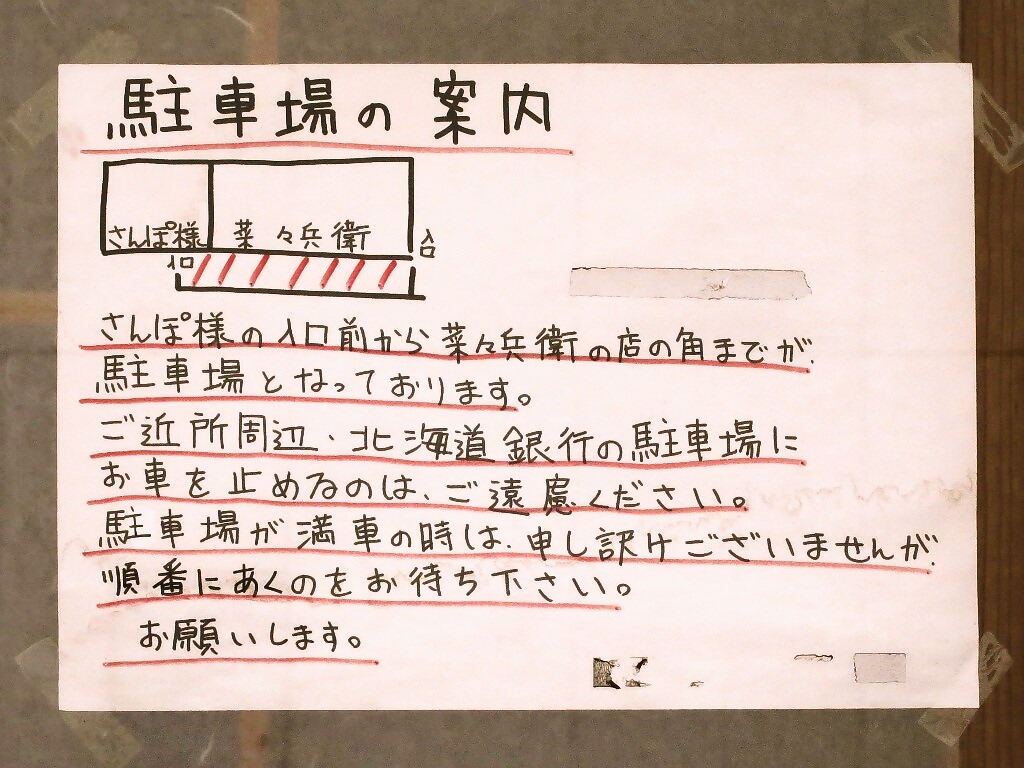 駐車場の案内
さんぽ様 菜々兵衛 入口
入口
さんぽ様の入口前から菜々兵衛の店の角までが、
駐車場となっております。
ご近所周辺、北海道銀行の駐車場に
お車を止めるのは、ご遠慮ください。
駐車場が満車の時は、申し訳けございませんが、
順番にあくのをお待ち下さい。
お願いします。